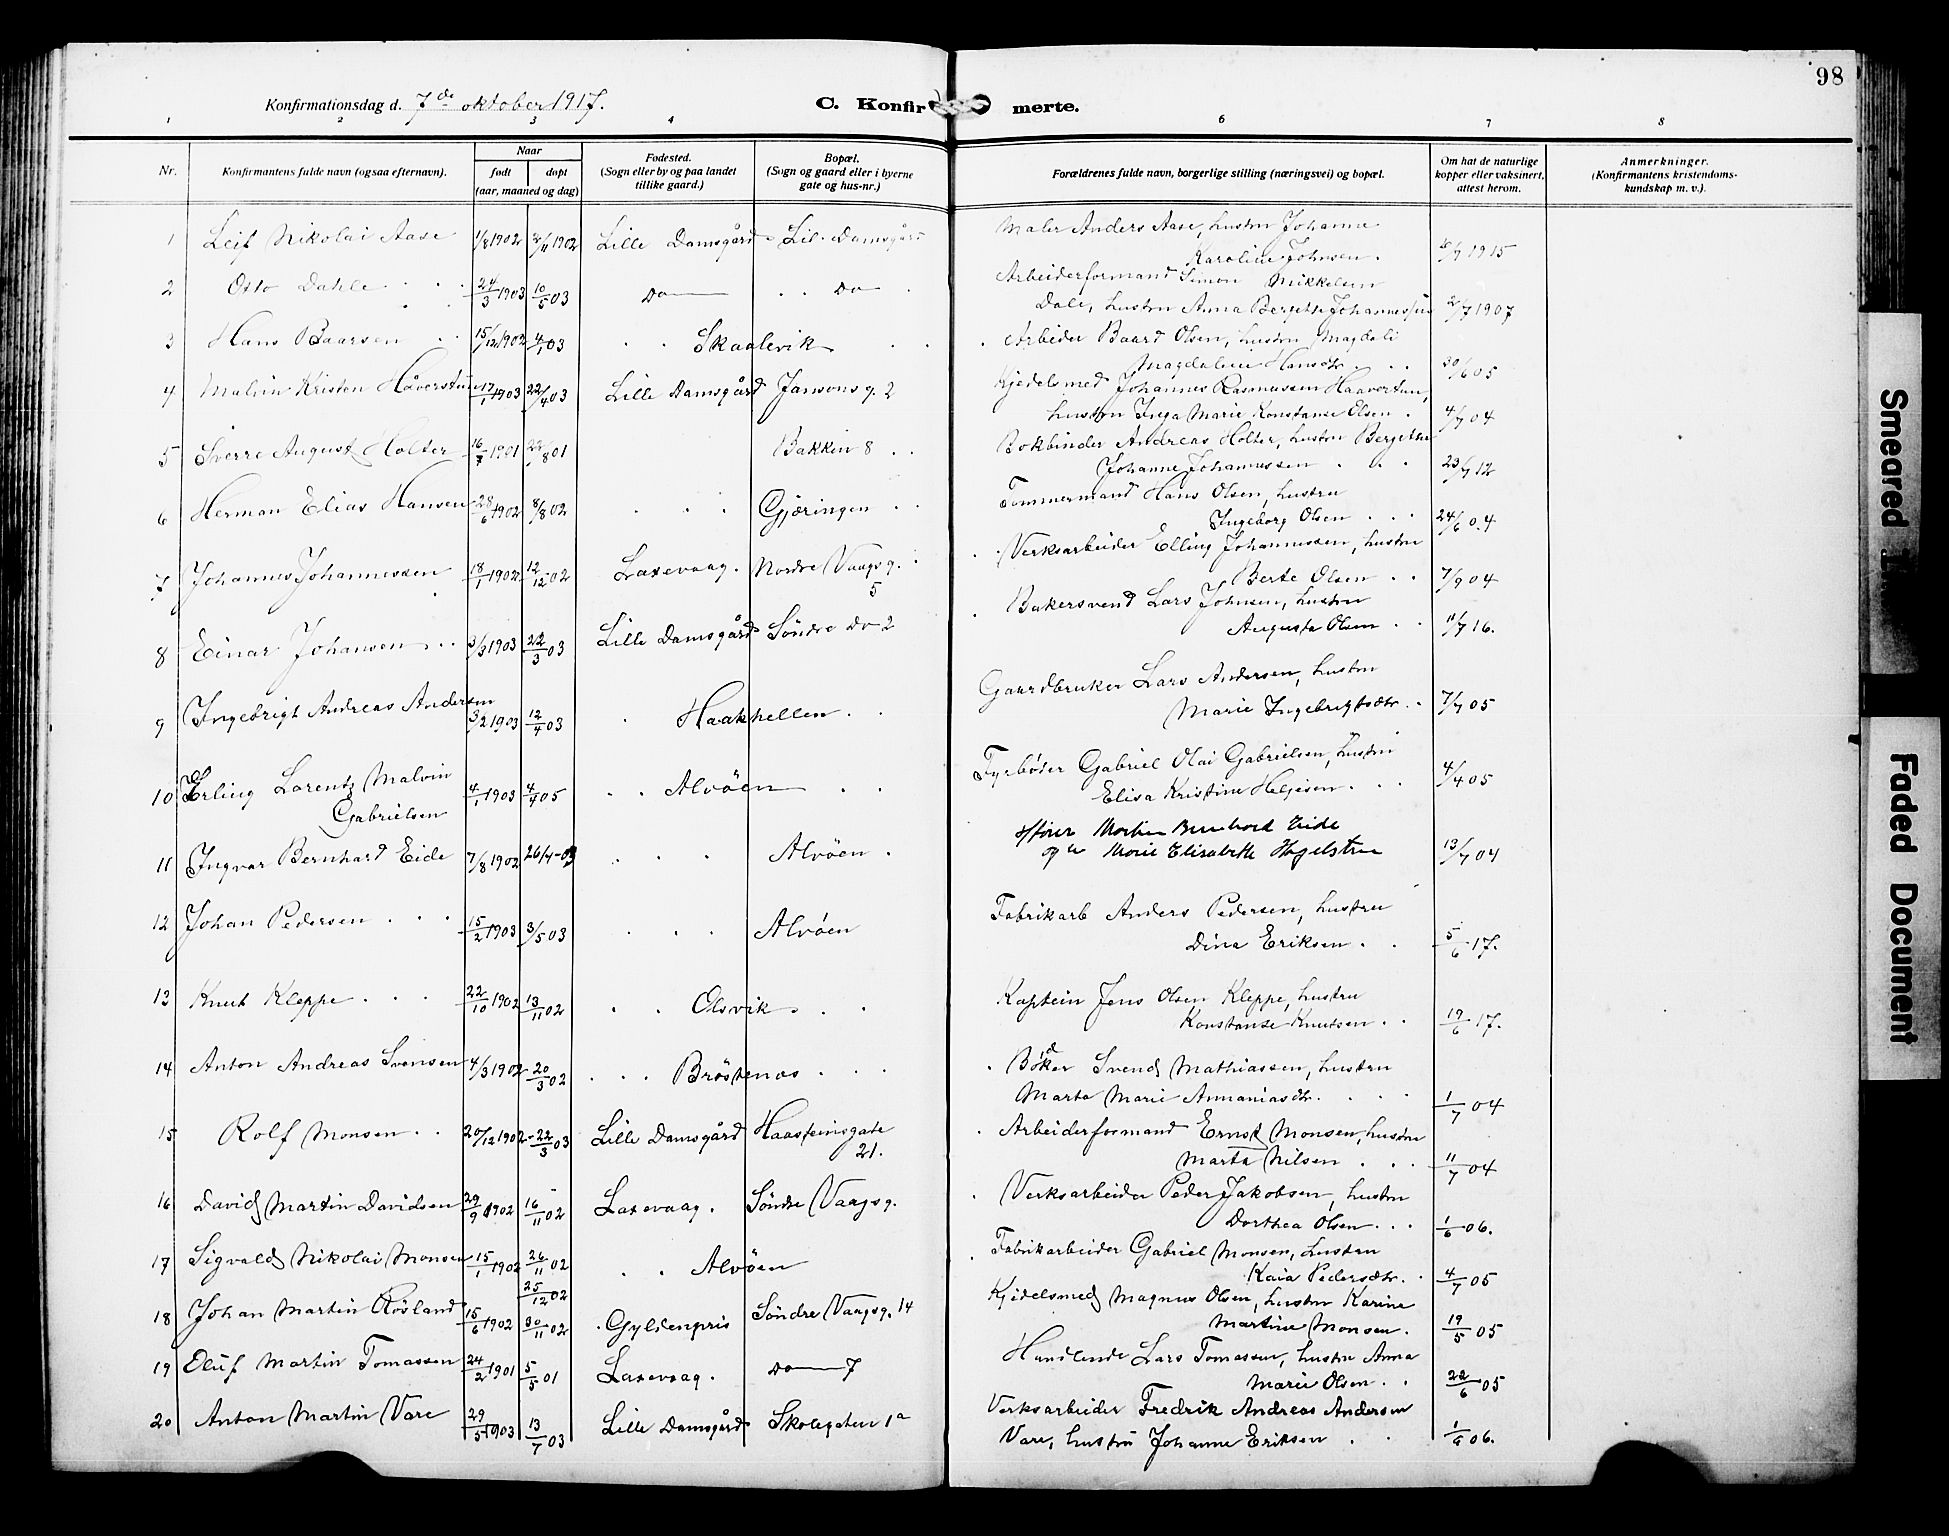 98
Konfirmationsdag d. 7de oktober 1917.
C. Konfir merte.
1 2 3 4 5 6 7 8
Nr. Konfirmantens fulde navn (ogsaa efternavn). Naar født døpt (aar, maaned og dag) Fødested. (Sogn eller by og paa landet tillike gaard.) Bopæl. (Sogn og gaard eller i byerne gate og hus-nr.) Forældrenes fulde navn, borgerlige stilling (næringsvei) og bopæl. Om hat de naturlige kopper eller vaksinert, attest herom. Anmerkninger. (Konfirmantens kristendoms-kundskap m. v.).
1 Leif Nikolai Aase 1/8 1902 /11 1902 Lille Damsgård Lil. Damsgård Maler Anders Aase, hustru Johanne
Karoline Johnsen. /7 1915
2 Otto Dahle 24/3 1903 10/5 03 Do Do Arbeiderformand Simon Mikkelsen
Dale, hustru Anna Bergitte Johannessen 2/7 1907
3 Hans Baarsen 15/12 1902 4/1 03 Skaalevik Arbeider Baard Olsen, hustru Magdali
Magdaline Hansdtr. 30/6 05
4 Malvin Kristen Håverstun 17/1 1903 22/4 03 Lille Damsgård Jansonsg. 2 Kjedelsmed Johannes Rasmussen Haavertun,
hustru Inga Marie Konstanse Olsen. 4/7 04
5 Sverre August Holter 16/7 1901 /8 01 Bakkin 8 Bokbinder Andreas Holter, hustru Bergitte
Johanne Johannessen 23/7 12
6 Herman Elias Hansen 28/6 1902 8/8 02 Gjæringen Tømmermand Hans Olsen, hustru
Ingeborg Olsen 24/6 04
7 Johannes Johannessen 18/1 1902 12/12 02 Laxevaag. Nordre Vaagsg. 5 Verksarbeider Elling Johannessen, hustru
Berte Olsen 7/9 04
8 Einar Johansen 3/3 1903 22/3 03 Lille Damsgård Söndre Do 2 Bakersvend Lars Johnsen, hustru
Augusta Olsen 11/7 16.
9 Ingebrigt Andreas Andersen 3/2 1903 12/4 03 Haakhellen Gaardbruker Lars Andersen, hustru
Marie Ingebrigtsdtr. 7/7 05
10 Erling Lorentz Malvin
Gabrielsen 4/1 1903 4/4 05 Alvöen Fyrbøter Gabriel Olai Gabrielsen, hustru
Elisa Kristine Helgesen. 4/4 05
11 Ingvar Bernhard Eide 7/8 1902 26/4-03 Alvöen Morten Bernhard Eide
og Marie Elisabeth 13/7 04
12 Johan Pedersen 15/2 1903 3/5 03 Alvöen Fabrikarb Anders Pedersen, hustru
Dina Eriksen. 5/6 17.
13 Knut Kleppe 22/10 1902 13/11 02 Olsvik Kaptein Jens Olsen Kleppe, hustru
Konstanse Knutsen 19/6 17.
14 Anton Andreas Svensen 4/3 1902 20/3 02 Bröstenæs Bøker Svend Mathiassen, hustru
Marta Marie Annaniasdtr. 1/7 04
15 Rolf Monsen 20/12 1902 22/3 03 Lille Damsgård Haasteinsgate 21. Arbeiderformand Ernst Monsen, hustru
Marta Nilsen 11/7 04
16 David Martin Davidsen 29/9 1902 16/11 02 Laxevaag. Söndre Vaagsg. Verksarbeider Peder Jakobsen, hustru
Dorthea Olsen 1/6 06.
17 Sigvald Nikolai Monsen 15/1 1902 26/11 02 Alvöen Fabrikarbeider Gabriel Monsen, hustru
Kaia Pedersdtr. 4/7 05
18 Johan Martin Røsland 15/6 1902 25/12 02 30/11 02 Gyldenpris Söndre Vaagsg. 14 Kjedelsmed Magnus Olsen, hustru Karine
Martine Monsen. 19/5 05
19 Oluf Martin Tomassen 24/2 1901 5/5 01 Laxevaag. Do 7 Handlende Lars Tomassen, hustru Anna
Marie Olsen 22/6 05
20 Anton Martin Vare 29/5 1903 13/7 03 Lille Damsgård Skolegaten 1a Verksarbeider Fredrik Andreas Andersen
Vare, hustru Johanne Eriksen 1/6 06.
Smeared
Faded Document